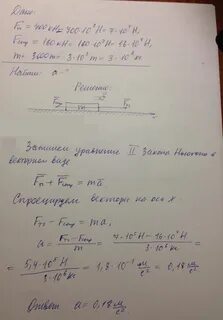 Дано:
Fп = 400 кН = 400·10³ Н = 4·10⁵ Н,
Fтр = 160 кН = 160·10³ Н = 16·10⁴ Н,
m = 3000 т = 3·10³ т = 3·10⁶ кг
Найти: a - ?
Решение
Fтр m Fп
x
Запишем уравнение II Закона Ньютона в
векторном виде
Fп + Fтр = ma
Спроецируем вектора на ось x
Fп - Fтр = ma,
a = Fп - Fтр / m = 4·10⁵ Н - 16·10⁴ Н / 3·10⁶ кг =
= 5,4·10⁵ Н / 3·10⁶ кг = 1,8·10⁻¹ м/с² = 0,18 м/с²
Ответ: a = 0,18 м/с²